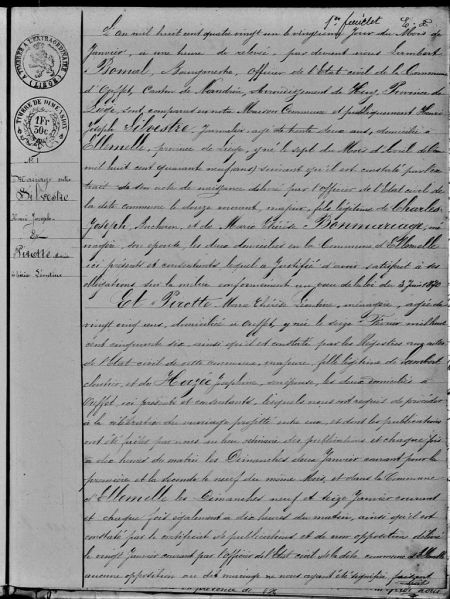 1er feuillet
L'an mil huit cent quatre vingt un le vingtième jour du Mois de
Janvier, à une heure de relevé, par devant nous Lambert
Bomal, Bourgmestre, Officier de l'Etat civil de la Commune
d'Ouffet, Canton de Nandrin, Arrondissement de Huy, Province de
Liège, sont comparus en notre Maison Commune et publiquement Henri
Joseph Silvestre, Journalier, âgé de trente deux ans, domicilié à
Ellemelle, province de Liège, y né le sept du Mois d'Avril de l'an
mil huit cent quarante neuf, ainsi qu'il est constaté par l'ex
trait de son acte de naissance délivré par l'Officier de l'Etat civil de
la dite commune le douze courant, majeur, fils légitime de Charles
Joseph, et de Marie Thérèse Bonmariage, mé
nagère, son épouse, les deux domiciliés en la Commune d'Ellemelle
ici présents et consentants, lequel a justifié d'avoir satisfait à ses
obligations sur la milice conformément au vœu de la loi du 3 Juin 1870
Et Pirotte Marie Thérèse Léontine, ménagère, âgée de
vingt cinq ans, domiciliée à Ouffet, y née le seize Février mil huit
cent cinquante six, ainsi qu'il est constaté par les Régistres aux actes
de l'Etat civil de cette commune, majeure, fille légitime de Lambert
et de Joséphine, son épouse, les deux domiciliés à
Ouffet, ici présents et consentants, lesquels nous ont requis de procéder
à la célébration du mariage projetté entre eux, et dont les publications
ont été faites par nous en due des publications et chaque fois
à dix heures du matin les Dimanches deux Janvier courant pour la
première et la seconde le neuf du même Mois, et dans la Commune
d'Ellemelle les Dimanches neuf et seize Janvier courant
et chaque fois également à dix heures du matin, ainsi qu'il est
constaté par le certificat de publications et de non opposition délivré
le vingt Janvier courant par l'officier de l'Etat civil de la dite commune d'Ellemelle
aucune opposition au dit mariage ne nous ayant été signifiée, faisant
droit
TIMBRE DE DIMENSION
1 Fr
30c
N° 1
Mariage entre
Silvestre
Henri Joseph
Et
Pirotte Marie
Thérèse Léontine